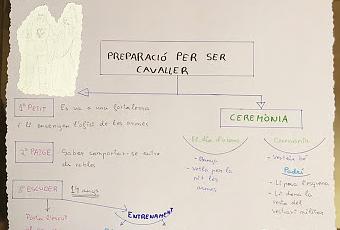 PREPARACIÓ PER SER
CAVALLER
1º PETIT
Es va a una fortalesa
i li ensenyen l'ofici de les armes
2º PATGE
Saber comportar-se entre
els nobles
3º ESCUDER
14 anys
Porta l'escut
ENTRENAMENT
CEREMÒNIA
El dia d'abans
- Banya
- vetlla per la
nit les
armes
Cerimònia
- Vesteix bé
Padrí
- Li posa l'espasa
- Li dona la
resta del
vestuari militar